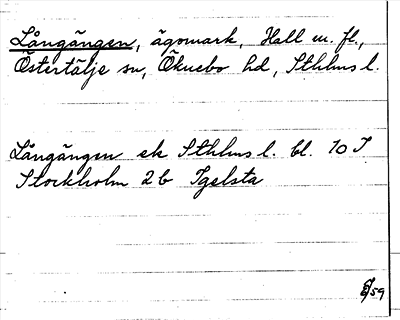 Långängen, ägomark, Hall m. fl.,
Östertälje sn, Öknebo hd, Sthlms l.
Långängen ek Sthlms l. bl. 10 I
Stockholm 2 b Igelsta
/59